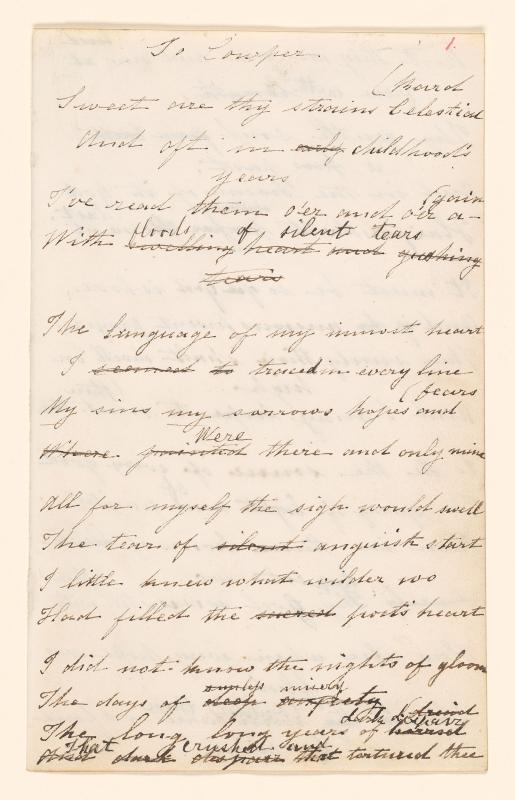 To Cowper.
1.
(Bard
Sweet are thy strains Celestial
And oft in early childhood's
years
I've read them o'er and o'er a-
(gain
floods of silent tears
With swelling heart and gushing
tears
The Language of my inmost heart
I seemed to traced in every line
(fears
My sins my sorrows hopes and
Were
Where painted there and only mine
All for myself the sigh would swell
The tear of silent anguish start
I little knew what wilder wo
Had filled the sacred poet's heart
I did not know the nights of gloom
sunless misery
The days of deep
death &
The long long years of
That crushed and
And dark despair that tortured thee